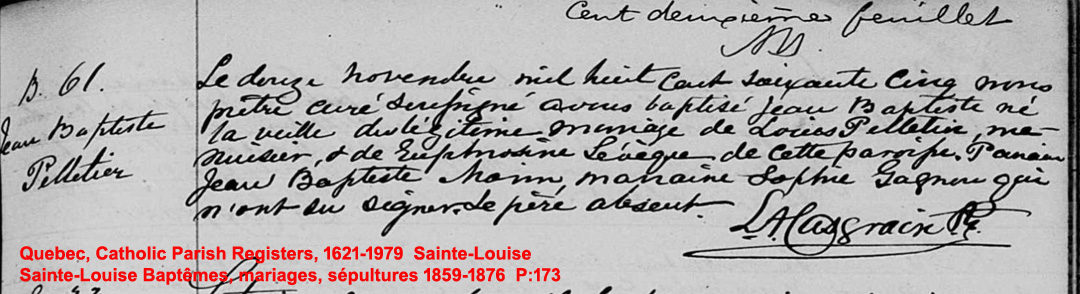 Cent deuxième feuillet
B. 61.
Jean Baptiste
Pelletier
Le douze novembre mil huit cent soixante cinq nous
prêtre curé soussigné avons baptisé Jean Baptiste né
la veille du légitime mariage de Louis Pelletier, me-
nuisier, & de Euphrosine Lévèque de cette paroisse. Parain
Jean Baptiste Morin, maraine Sophie Gagnon qui
n'ont su signer. Le père absent.
Quebec, Catholic Parish Registers, 1621-1979 Sainte-Louise
Sainte-Louise Baptêmes, mariages, sépultures 1859-1876 P:173